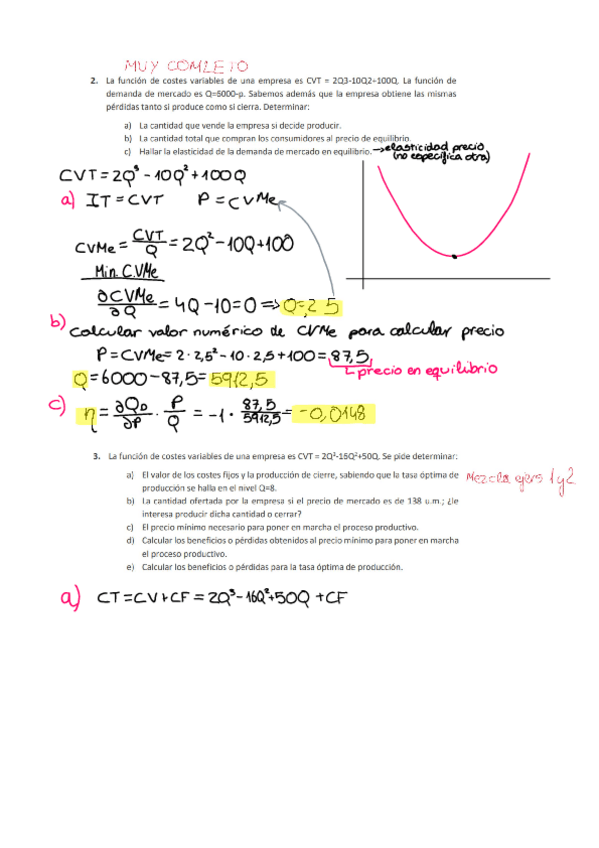 MUY COMLETO
2. La función de costes variables de una empresa es CVT = 2Q3-10Q2+100Q. La función de
demanda de mercado es Q=6000-p. Sabemos además que la empresa obtiene las mismas
pérdidas tanto si produce como si cierra. Determinar:
a) La cantidad que vende la empresa si decide producir.
b) La cantidad total que compran los consumidores al precio de equilibrio.
c) Hallar la elasticidad de la demanda de mercado en equilibrio. → elasticidad precio
(no especifica otra)
CVT = 2Q³ - 10Q² + 100Q
a) IT = CVT P = CVMe
CVMe = CVT/Q = 2Q² - 10Q + 100
Min. CVMe
∂CVMe/∂Q = 4Q - 10 = 0 => Q = 2,5
b) Calcular valor numérico de CVMe para calcular precio
P = CVMe = 2 · 2,5² - 10 · 2,5 + 100 = 87,5
precio en equilibrio
Q = 6000 - 87,5 = 5912,5
c) η = ∂QD/∂P · P/Q = -1 · 87,5/5912,5 = -0,0148
3. La función de costes variables de una empresa es CVT = 2Q³-16Q²+50Q. Se pide determinar:
a) El valor de los costes fijos y la producción de cierre, sabiendo que la tasa óptima de
producción se halla en el nivel Q=8.
Mezcla ejers 1 y 2
b) La cantidad ofertada por la empresa si el precio de mercado es de 138 u.m.; ¿le
interesa producir dicha cantidad o cerrar?
c) El precio mínimo necesario para poner en marcha el proceso productivo.
d) Calcular los beneficios o pérdidas obtenidos al precio mínimo para poner en marcha
el proceso productivo.
e) Calcular los beneficios o pérdidas para la tasa óptima de producción.
a) CT = CV + CF = 2Q³ - 16Q² + 50Q + CF